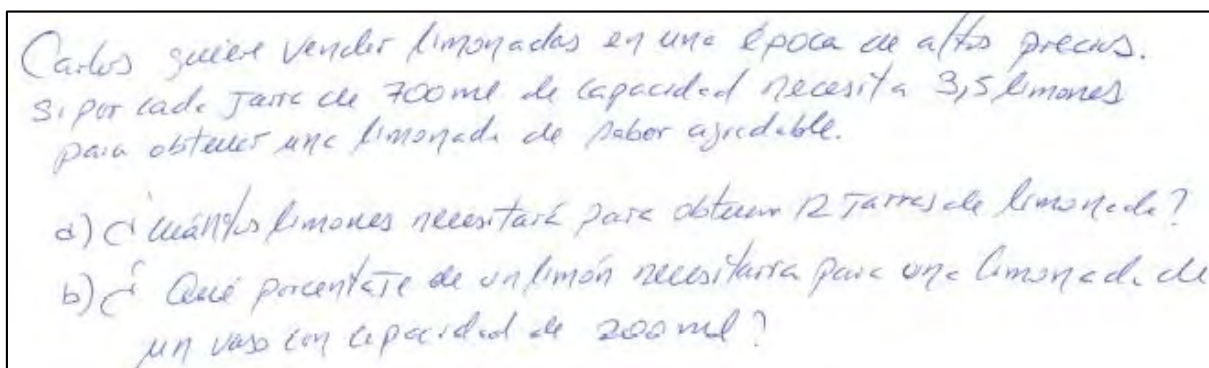 Carlos quiere vender limonadas en una época de altos precios.
Si por cada Jarra de 700 ml de capacidad necesita 3,5 limones
para obtener una limonada de sabor agradable.
a) ¿Cuántos limones necesitará para obtener 12 Jarras de limonada?
b) ¿Qué porcentaJe de un limón necesitaría para una limonada de
un vaso con capacidad de 200 ml?